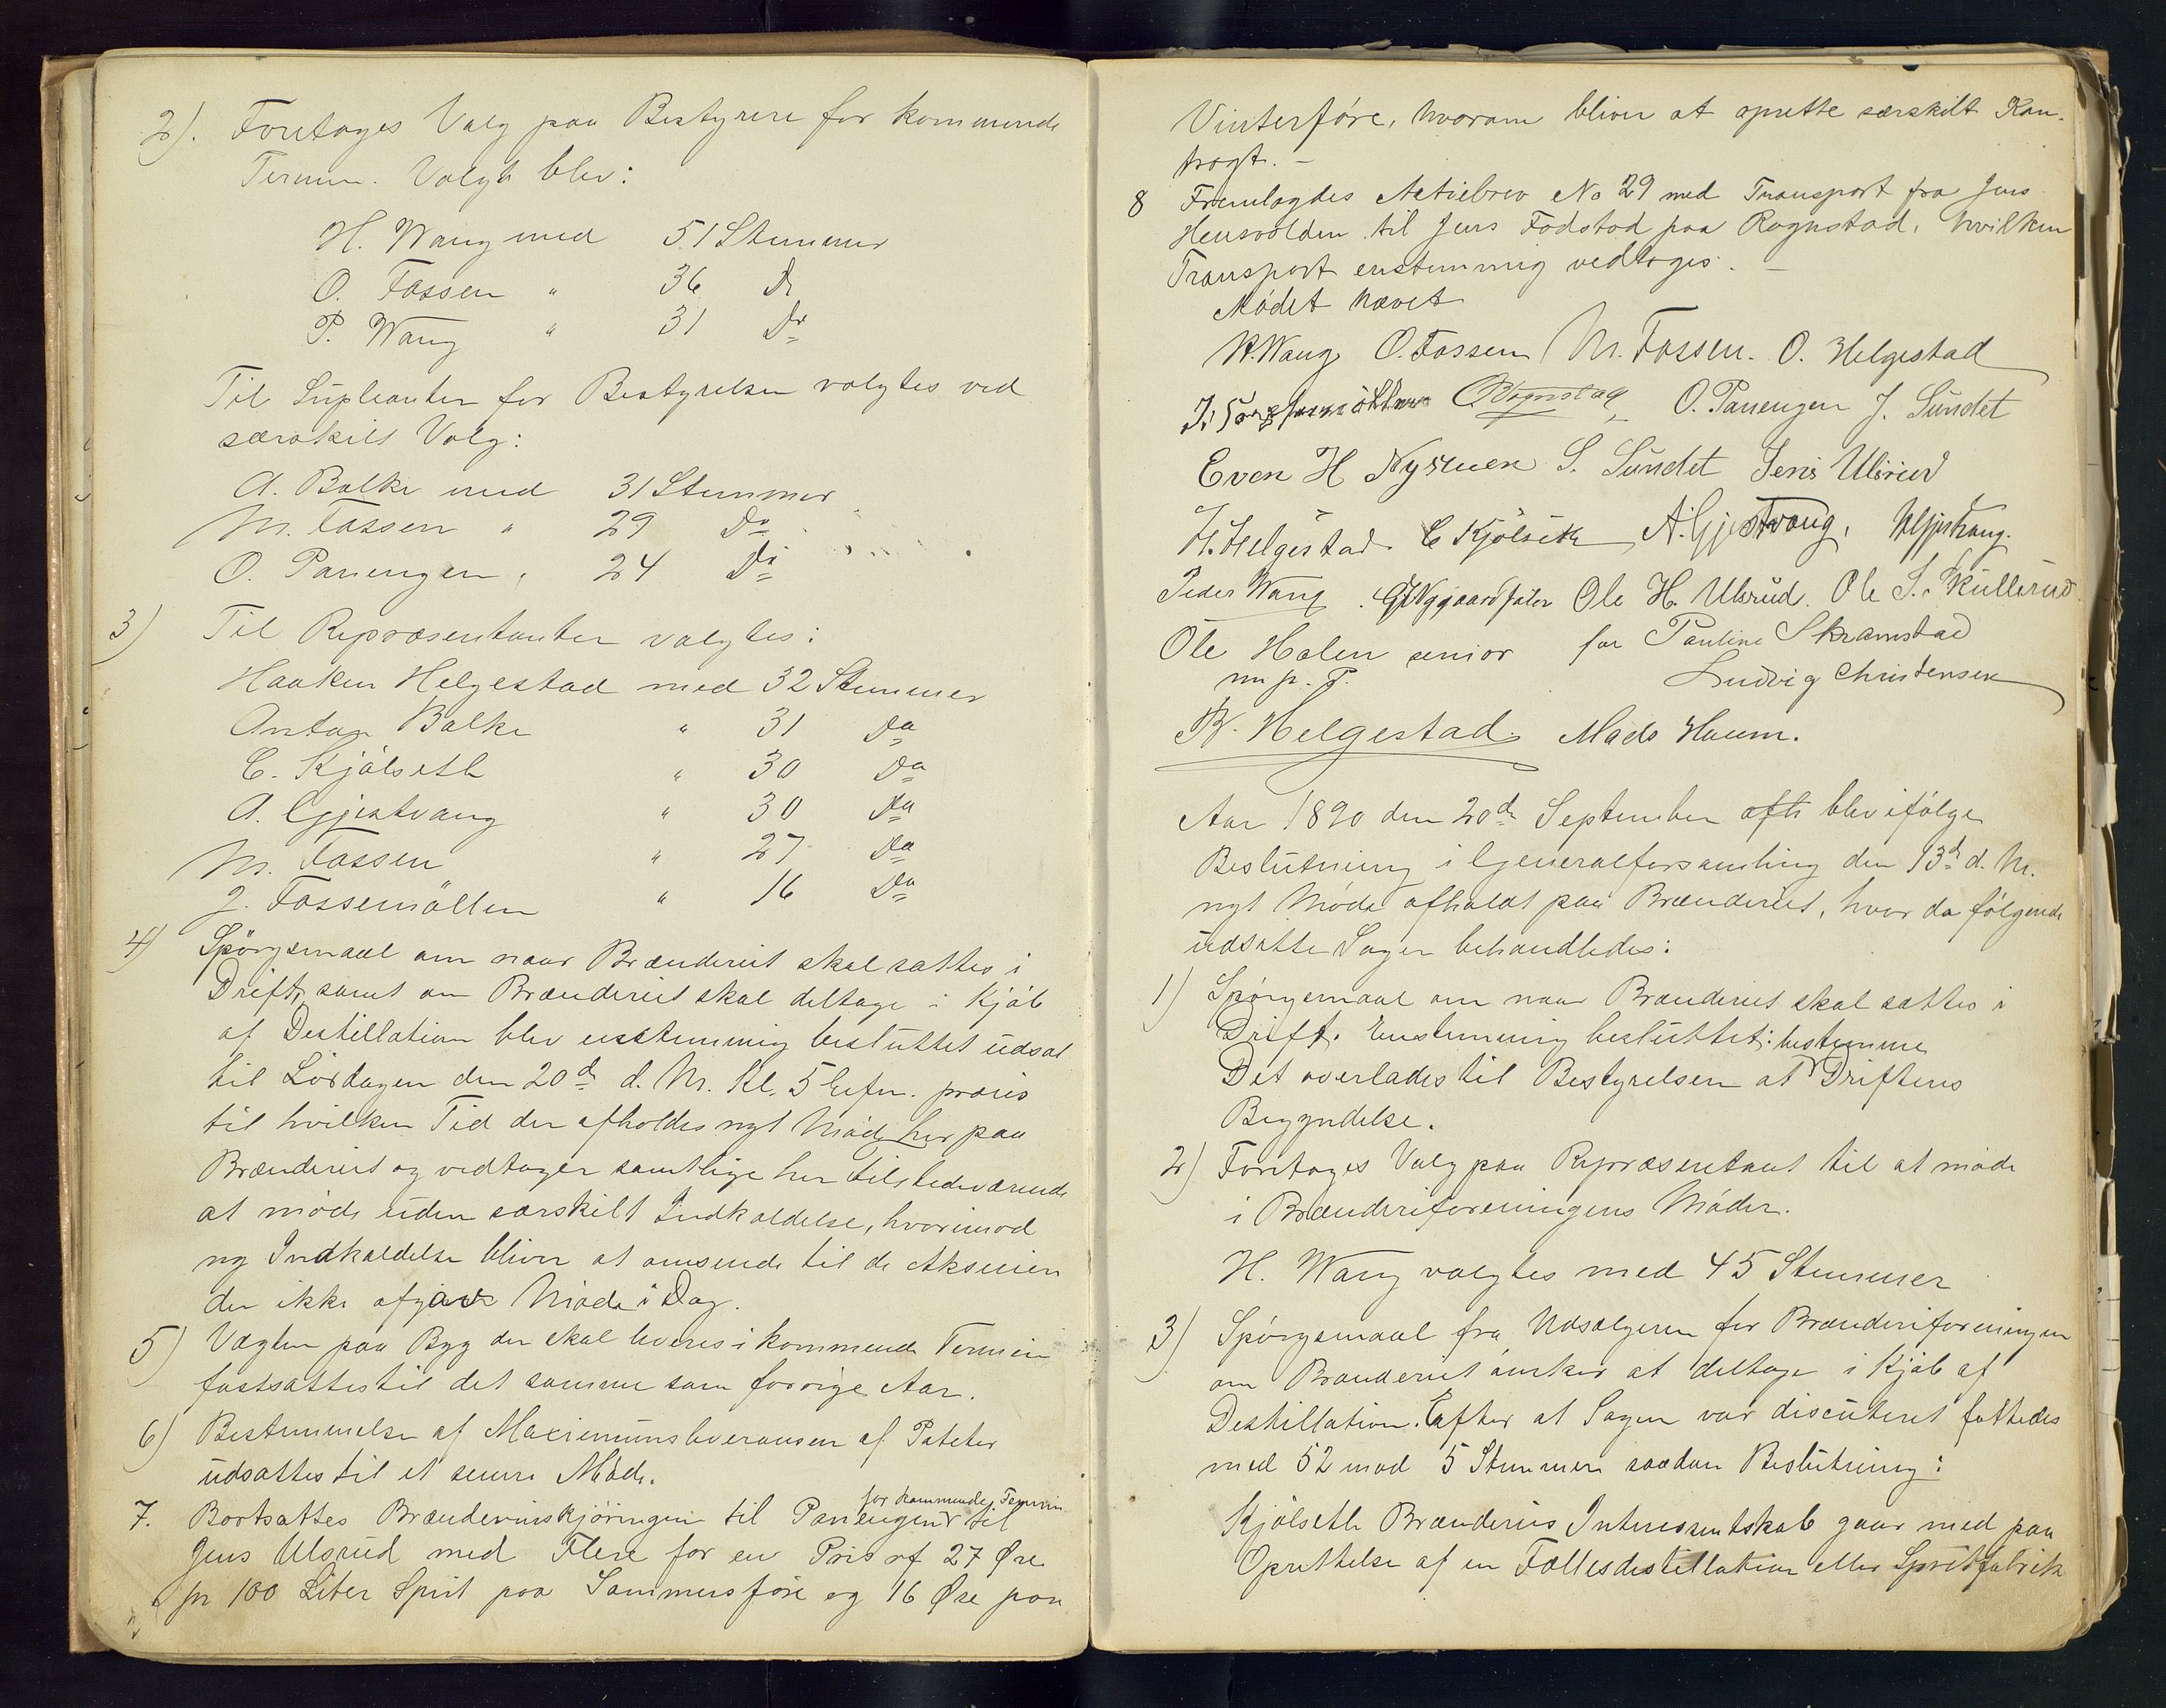 2). Foretages Valg paa Bestyrere for kommende
Termin. Valgt blev:
H. Wang med 51 Stemmer
O. Fossen " 36 Do
P. Wang " 31 Do
Til Supleanter for Bestyrelsen valgtes ved
særskilt Valg:
A. Balke med 31 Stemmer
M. Fossen " 29 Do
O. Panengen " 24 Do
3) Til Repræsentanter valgtes:
Haaken Helgestad med 32 Stemmer
Anton Balke " 31 Do
C. Kjølseth " 30 Do
A. Gjestvang " 30 Do
M. Fossen " 27 Do
J. Fossemöllen " 16 Do
4) Spörgsmaal om naar Brænderiet skal sættes i
Drift, samt om Brænderiet skal deltage i Kjöb
af Destillation blev enstemmig besluttet udsat
til Lördagen den 20de d. M. Kl. 5 Eefm. præcis
til hvilken Tid der afholdes nyt Möde her paa
Brænderiet og vedtager samtlige her tilstedeværende
at möde uden særskilt Indkaldelse, hvorimod
ny Indkaldelse bliver at omsende til de Aksieiere
der ikke afgav Möde i Dag.
5) Vægten paa Byg der skal leveres i kommende Termin
fastsættes til det samme som forrige Aar.
6) Bestemmelse af Maximumsleveransen af Poteter
udsattes til et senere Möde.
for kommende Termin
7. Bortsattes Brændevinskjöringen til Panengen til
Jens Ulsrud med Flere for en Pris af 27 Øre
pr 100 Liter Spirit paa Sommersföre og 16 Øre paa
Vinterföre, hvorom bliver at oprette særskilt Kon-
tragt. –
8 Fremlagdes Aktiebrev No 29 med Transport fra Jens
Hensvolden til Jens Fodstad paa Rognstad, hvilken
Transport enstemmig vedtoges. –
Mödet hævet
H. Wang O. Fossen M. Fossen. O. Helgestad
O. Rognstad O. Panengen J. Sundet
Even H Nysveen S. Sundet Jens Ulsrud
H. Helgestad C Kjölseth A. Gjestvang,
Peder Wang. Ole H. Ulsrud. Ole S. Kullerud
Ole Holen senior for Pauline Skramstad
m. p. P. Ludvig Christensen
B. Helgestad. Mads Houm.
Aar 1890 den 20de September afh blev ifölge
Beslutning i Generalforsamling den 13de d. M.
nyt Möde afholdt paa Brænderiet, hvor da fölgende
udsatte Sager behandledes:
1) Spörgsmaal om naar Brænderiet skal sættes i
Drift. Enstemmig besluttet: bestemme
Det overlades til Bestyrelsen at Driftens
Begyndelse.
2) Foretages Valg paa Repræsentant til at möde
i Brænderiforeningens Möder.
H. Wang valgtes med 45 Stemmer
3) Spörgsmaal fra Udsælgeren for Brænderiforeningen
om Brænderiet önsker at deltage i Kjöb af
Destillation. Efter at Sagen var discuteret fattedes
med 52 mod 5 Stemmer saadan Beslutning:
Kjölseth Brænderies Interessentskab gaar med paa
Oprettelse af en Fællesdestillation eller Spritfabrik